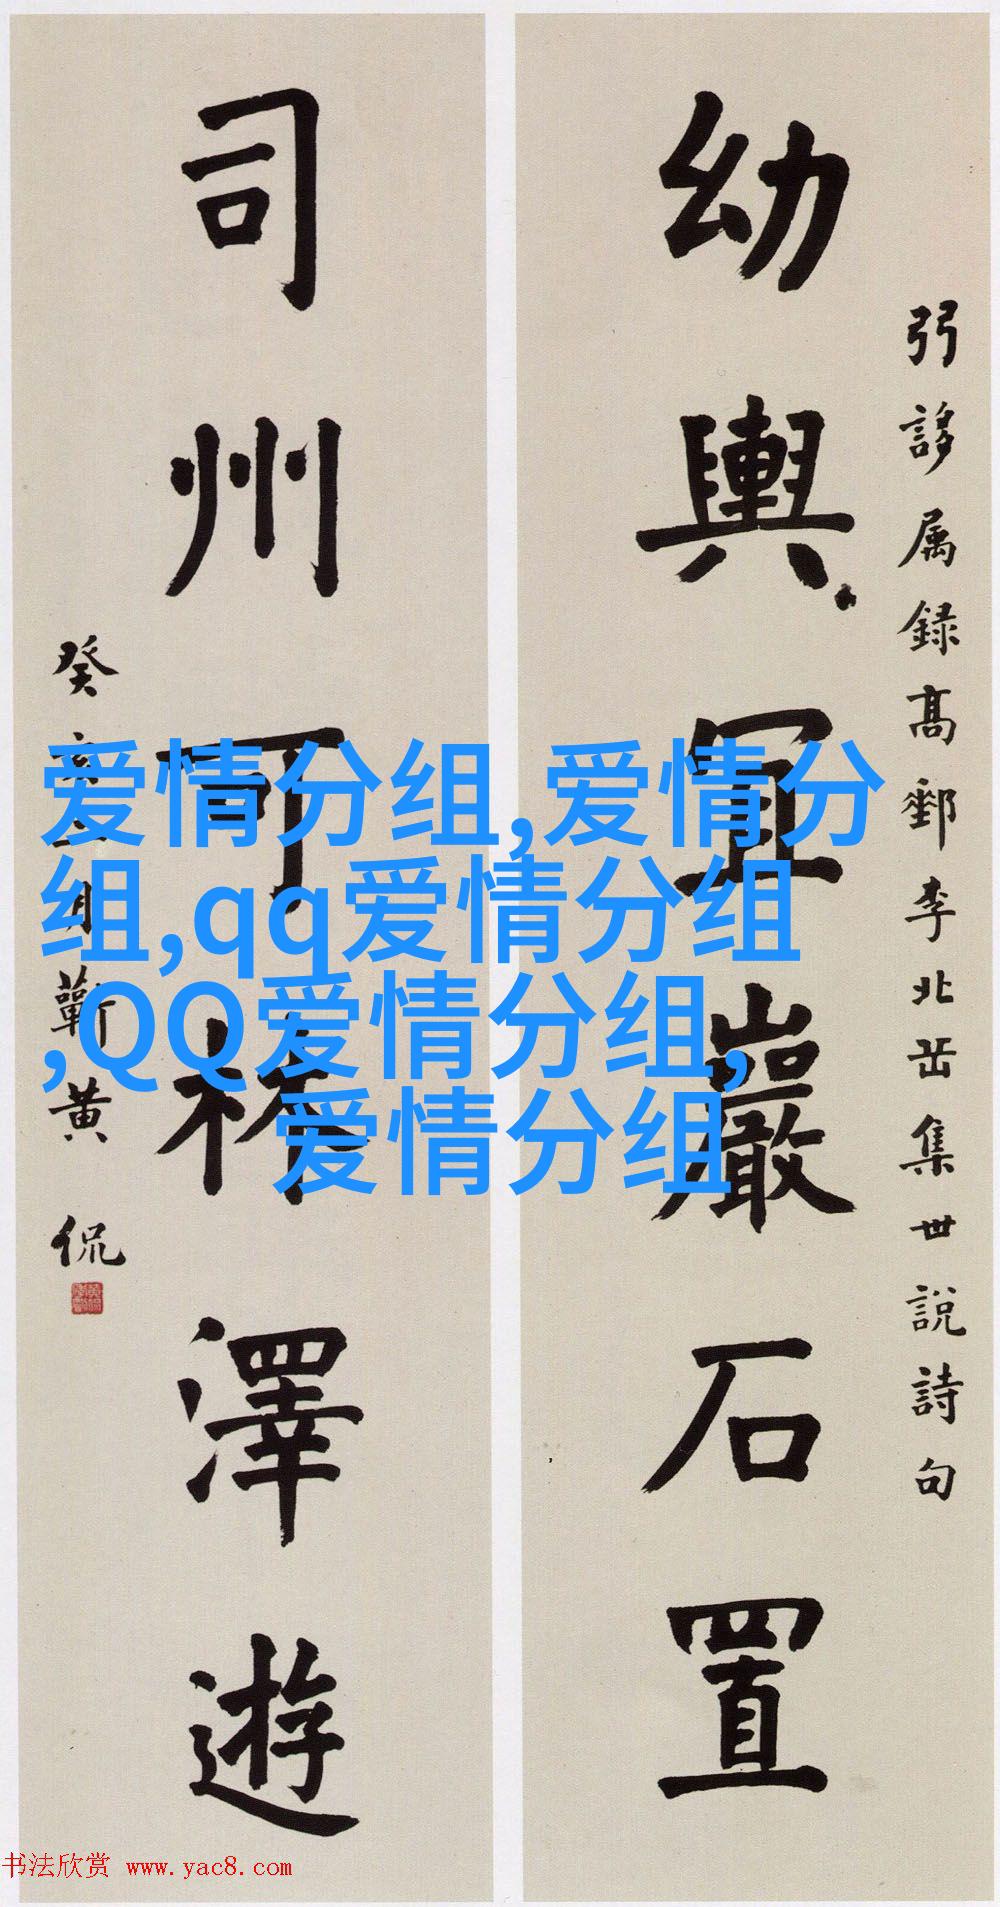 幼輿宜巖石置
弜誃属録高郵李北岳集世說詩句
司州可林澤遊
癸亥月蘄黄侃
爱情分组,爱情分
组,qq爱情分组
,QQ爱情分组,
爱情分组
书法欣赏 www.yac8.com